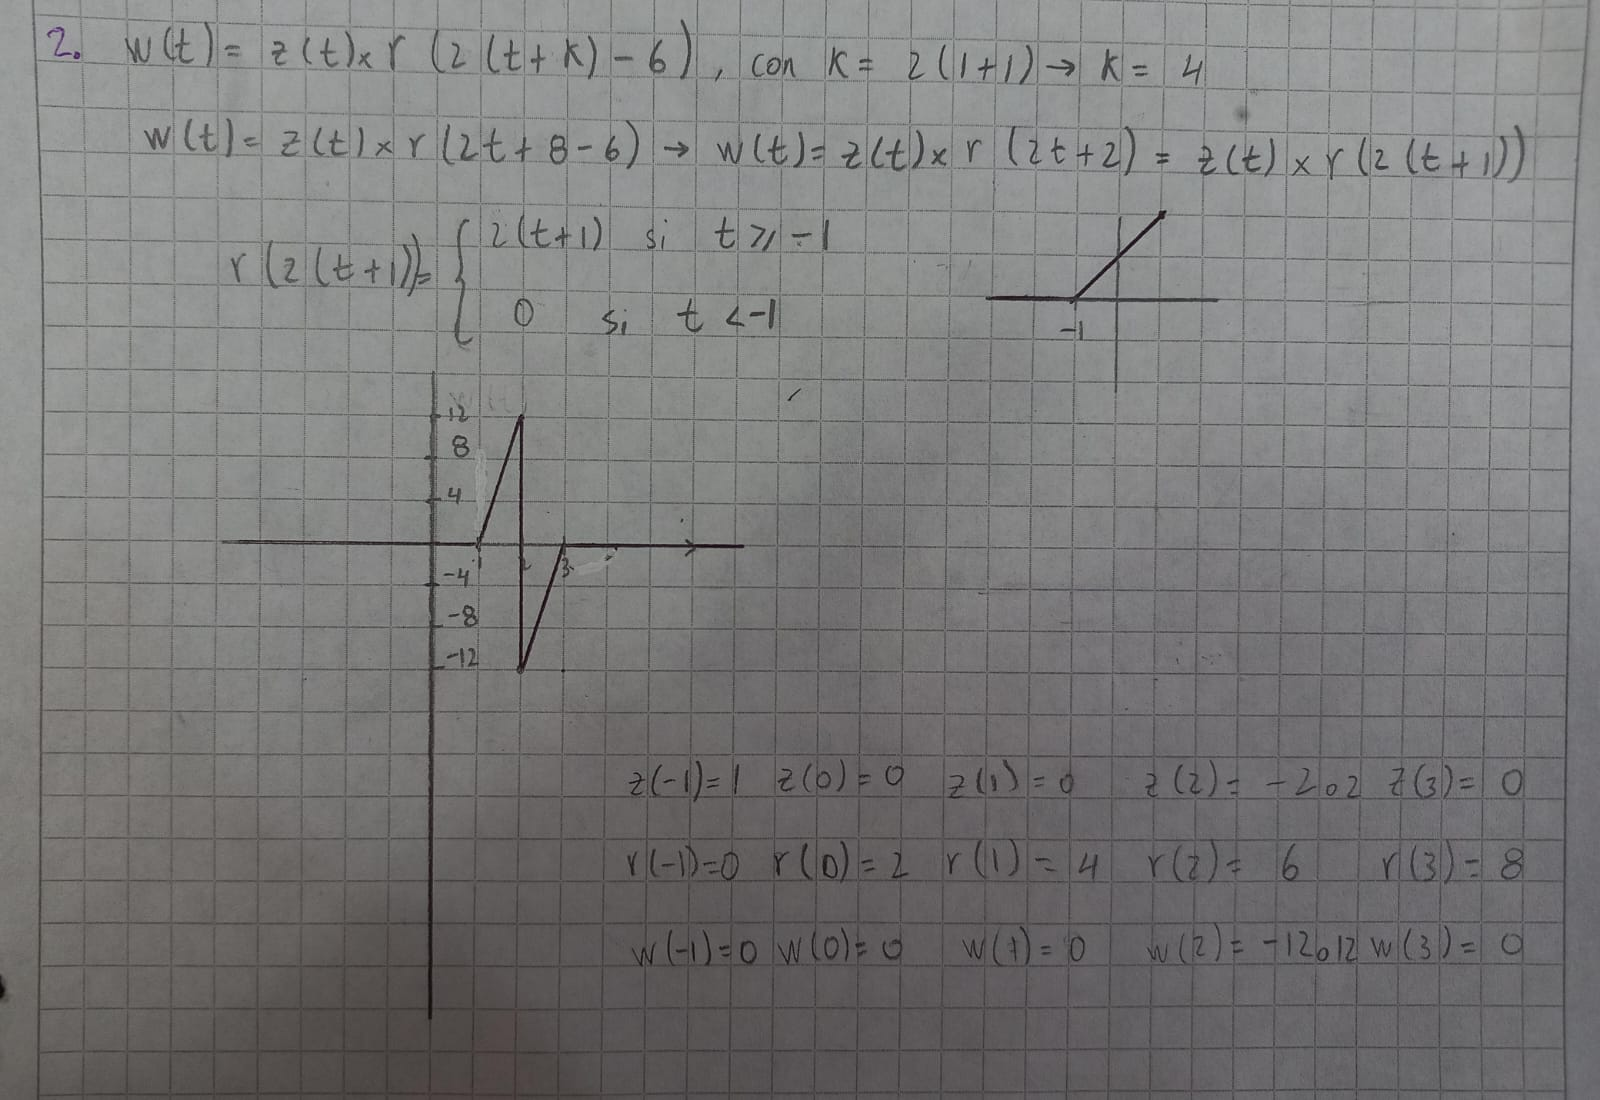 2. w(t)= z(t)x r (2(t+k)-6), con k= 2(1+1)→ k= 4
w(t)= z(t)x r(2t+8-6)→ w(t)= z(t)x r (2t+2) = z(t) x r(2(t+1))
r(2(t+1))= { 2(t+1) si t ≥ -1
0 si t <-1
-1
12
8
4
-4
-8
-12
1
3
z(-1)=1 z(0)=0 z(1)=0 z(2)= -2 o 2 z(3)= 0
r(-1)=0 r(0)=2 r(1)=4 r(2)= 6 r(3)= 8
w(-1)=0 w(0)=0 w(1)=0 w(2)= -12 o 12 w(3)= 0